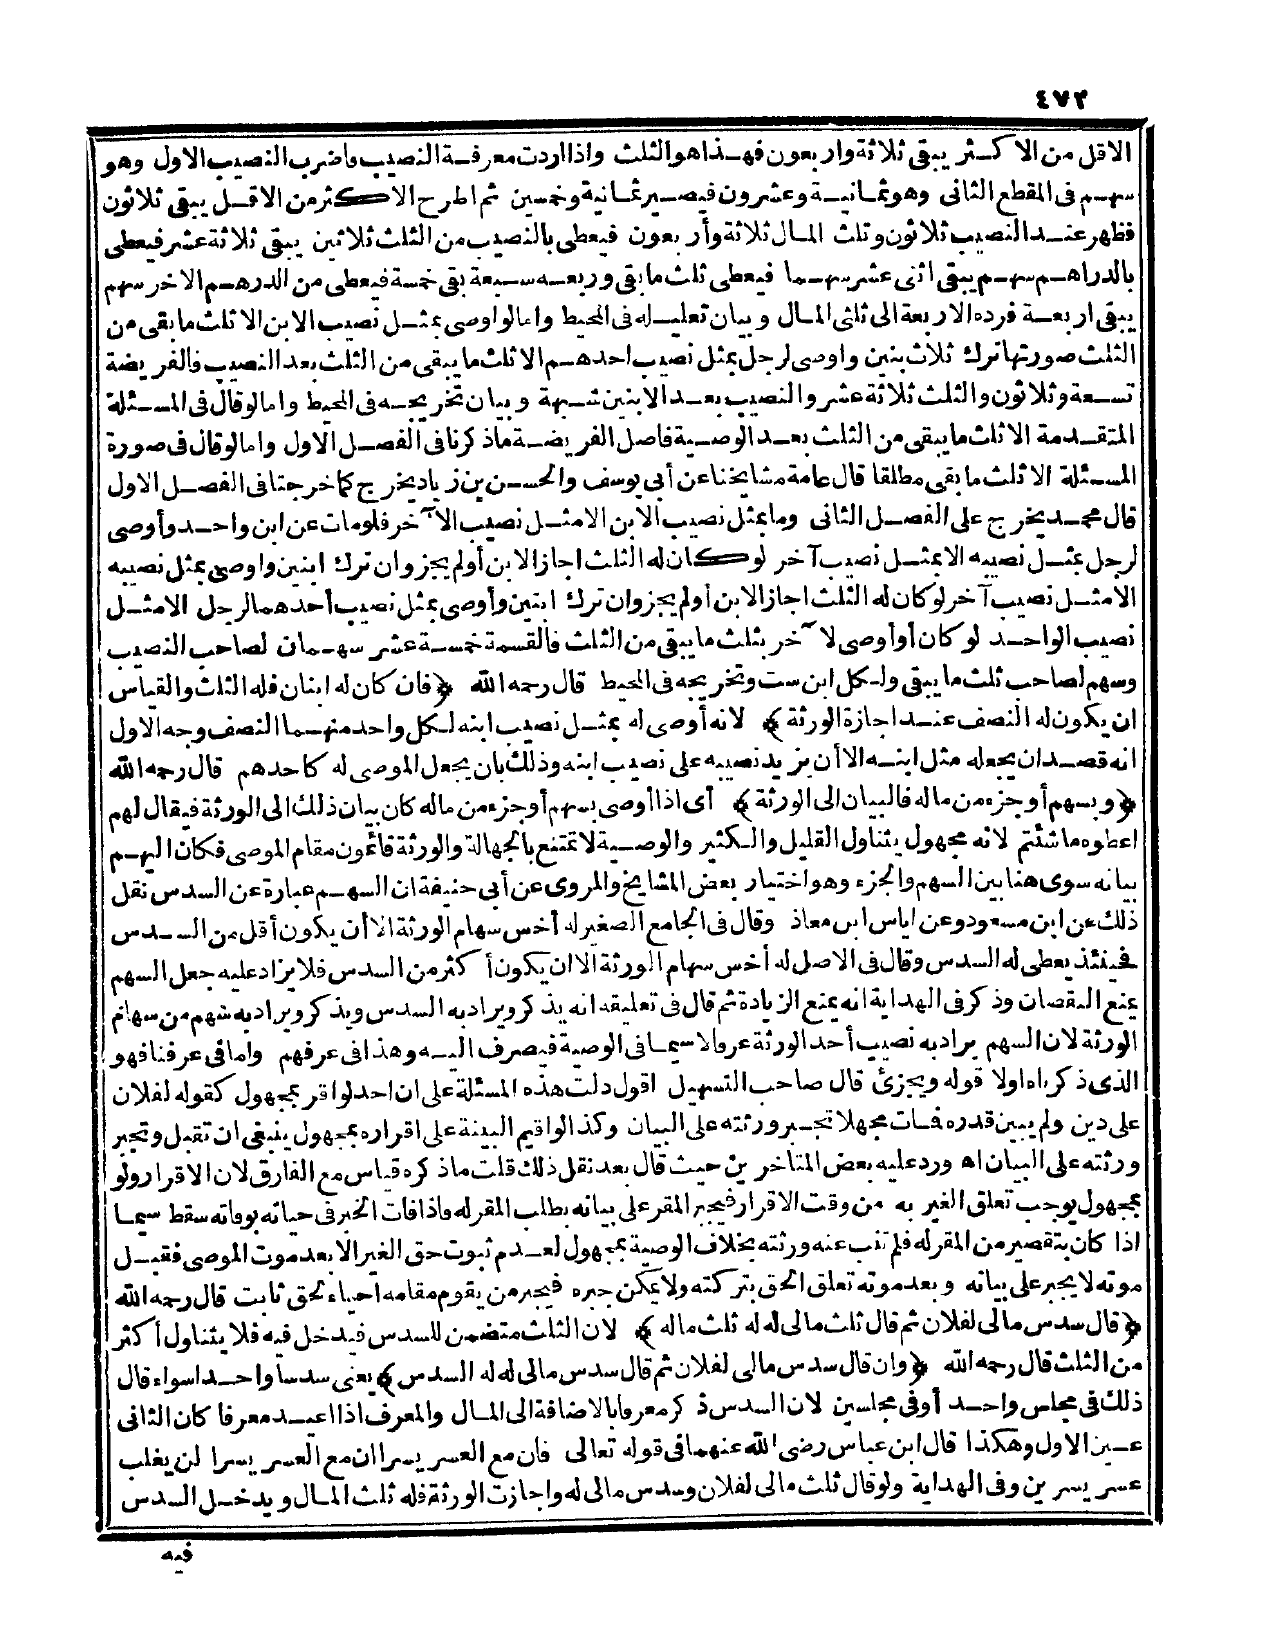 ٤٧٢
الاقل من الاكثر يبقى ثلاثة واربعون فهذا هو الثلث واذا اردت معرفة النصيب فاضرب النصيب الاول وهو
سهم فى المقطع الثانى وهو ثمانية وعشرون فيصير ثمانية وخمسين ثم اطرح الاكثر من الاقل يبقى ثلاثون
فظهر عند النصيب ثلاثون وثلث المال ثلاثة وأربعون فيعطى بالنصيب من الثلث ثلاثين يبقى ثلاثة عشر فيعطى
بالدراهم سهم يبقى اثنى عشر سهما فيعطى ثلث ما بقى وربعه سبعة بقى خمسة فيعطى من الدرهم الاخر سهم
يبقى اربعة فرده الاربعة الى ثلثى المال وبيان تعليله فى المحيط واما لو اوصى بمثل نصيب الابن الا ثلث ما بقى من
الثلث صورتها ترك ثلاث بنين واوصى لرجل بمثل نصيب احدهم الا ثلث ما يبقى من الثلث بعد النصيب فالفريضة
تسعة وثلاثون والثلث ثلاثة عشر والنصيب بعد الابنين شبهة وبيان تخريجه فى المحيط واما لو قال فى المسئلة
المتقدمة الا ثلث ما يبقى من الثلث بعد الوصية فاصل الفريضة ما ذكرنا فى الفصل الاول واما لو قال فى صورة
المسئلة الا ثلث ما بقى مطلقا قال عامة مشايخنا عن أبى يوسف والحسن بن زياد يخرج كما خرجنا فى الفصل الاول
قال محمد يخرج على الفصل الثانى وما بمثل نصيب الابن الا مثل نصيب الآخر فلو مات عن ابن واحد وأوصى
لرجل بمثل نصيبه الا بمثل نصيب آخر لو كان له الثلث اجاز الابن أو لم يجز وان ترك ابنين واوصى بمثل نصيبه
الا مثل نصيب آخر لو كان له الثلث اجاز الابن أو لم يجز وان ترك ابنين وأوصى بمثل نصيب أحدهما لرجل الا مثل
نصيب الواحد لو كان أو أوصى لآخر بثلث ما يبقى من الثلث فالقسمة خمسة عشر سهمان لصاحب النصيب
وسهم لصاحب ثلث ما يبقى ولكل ابن ست وتخريجه فى المحيط قال رحمه الله ﴿فان كان له ابنان فله الثلث والقياس
ان يكون له النصف عند اجازة الورثة﴾ لانه أوصى له بمثل نصيب ابنه لكل واحد منهما النصف وجه الاول
انه قصد ان يجعله مثل ابنه الا أن يزيد نصيبه على نصيب ابنه وذلك بان يجعل الموصى له كاحدهم قال رحمه الله
﴿وبسهم أو جزء من ماله فالبيان الى الورثة﴾ أى اذا أوصى بسهم أو جزء من ماله كان بيان ذلك الى الورثة فيقال لهم
اعطوه ما شئتم لانه مجهول يتناول القليل والكثير والوصية لا تمتنع بالجهالة والورثة قائمون مقام الموصى فكان اليهم
بيانه سوى هنا بين السهم والجزء وهو اختيار بعض المشايخ والمروى عن أبى حنيفة ان السهم عبارة عن السدس نقل
ذلك عن ابن مسعود وعن اياس ابن معاذ وقال فى الجامع الصغير له أخس سهام الورثة الا أن يكون أقل من السدس
فحينئذ يعطى له السدس وقال فى الاصل له أخس سهام الورثة الا ان يكون أكثر من السدس فلا يزاد عليه جعل السهم
يمنع النقصان وذكر فى الهداية انه يمنع الزيادة ثم قال فى تعليقه انه يذكر ويراد به السدس ويذكر ويراد به سهم من سهام
الورثة لان السهم يراد به نصيب أحد الورثة عرفا لا سيما فى الوصية فيصرف اليه وهذا فى عرفهم واما فى عرفنا فهو
الذى ذكرناه اولا قوله ويجزئ قال صاحب التسهيل اقول دلت هذه المسئلة على ان احد لو اقر بمجهول كقوله لفلان
على دين ولم يبين قدره فمات مجهلا تجبر ورثته على البيان وكذا لو اقيم البينة على اقراره بمجهول ينبغى ان تقبل وتجبر
ورثته على البيان اه ورد عليه بعض المتاخرين حيث قال بعد نقل ذلك قلت ما ذكره قياس مع الفارق لان الاقرار ولو
بمجهول يوجب تعلق الغير به من وقت الاقرار فيجبر المقر على بيانه بطلب المقر له فاذا فات الخبر فى حياته بوفاته سقط سيما
اذا كان بتقصير من المقر له فلم تنب عنه ورثته بخلاف الوصية بمجهول لعدم ثبوت حق الغير الا بعد موت الموصى فقبل
موته لا يجبر على بيانه وبعد موته تعلق الحق بتركته ولا يمكن جبره فيجبر من يقوم مقامه احياء لحق ثابت قال رحمه الله
﴿قال سدس مالى لفلان ثم قال ثلث مالى له له ثلث ماله﴾ لان الثلث متضمن للسدس فيدخل فيه فلا يتناول أكثر
من الثلث قال رحمه الله ﴿وان قال سدس مالى لفلان ثم قال سدس مالى له له السدس﴾ يعنى سدسا واحدا سواء قال
ذلك فى مجلس واحد أو فى مجلسين لان السدس ذكر معرفا بالاضافة الى المال والمعرف اذا اعيد معرفا كان الثانى
عين الاول وهكذا قال ابن عباس رضى الله عنهما فى قوله تعالى فان مع العسر يسرا ان مع العسر يسرا لن يغلب
عسر يسرين وفى الهداية ولو قال ثلث مالى لفلان وسدس مالى له واجازت الورثة فله ثلث المال ويدخل السدس
فيه